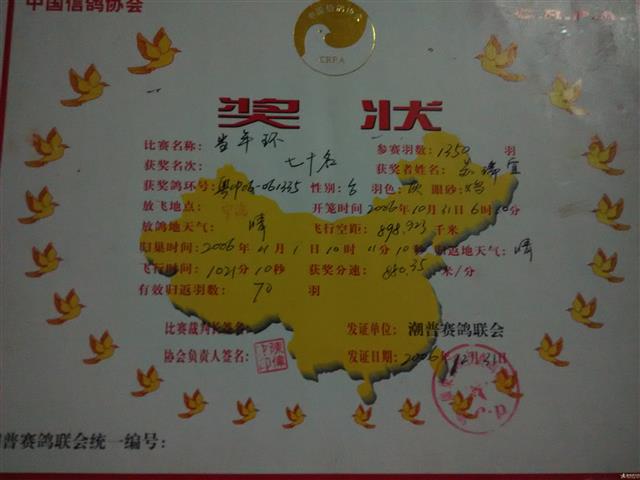 中国信鸽协会
CRPA
奖 状
比赛名称：当年环 参赛羽数：1350 羽
获奖名次： 七十名 获奖者姓名：
获奖鸽环号：粤 06-061335 性别： 羽色：灰 眼砂：鸡
放飞地点： 开笼时间 2006年10月31日6时 分
放鸽地天气： 晴 飞行空距：898.923 千米
归巢时间：2006年11月1日10时11分10秒 归返地天气：晴
飞行时间：1021分10秒 获奖分速：880.35 米/分
有效归返羽数： 70 羽
比赛裁判长签名： 发证单位：潮普赛鸽联会
协会负责人签名： 发证日期：2006年12月31日
普赛鸽联会统一编号：